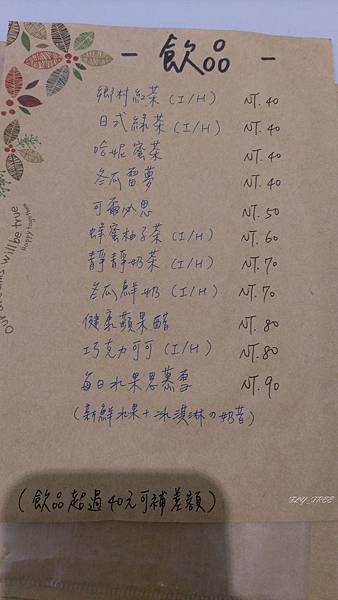 - 飲品 -
鄉村紅茶 (I/H) NT. 40
日式綠茶 (I/H) NT. 40
哈妮蜜茶 NT. 40
冬瓜雷夢 NT. 40
可爾必思 NT. 50
蜂蜜柚子茶 (I/H) NT. 60
靜靜奶茶 (I/H) NT. 70
冬瓜鮮奶 (I/H) NT. 70
健康蘋果醋 NT. 80
巧克力可可 (I/H) NT. 80
每日水果思慕雪 NT. 90
(新鮮水果+冰淇淋の奶昔)
(飲品超過40元可補差額)
Our dreams will be true
Happy together
FLY_FREE